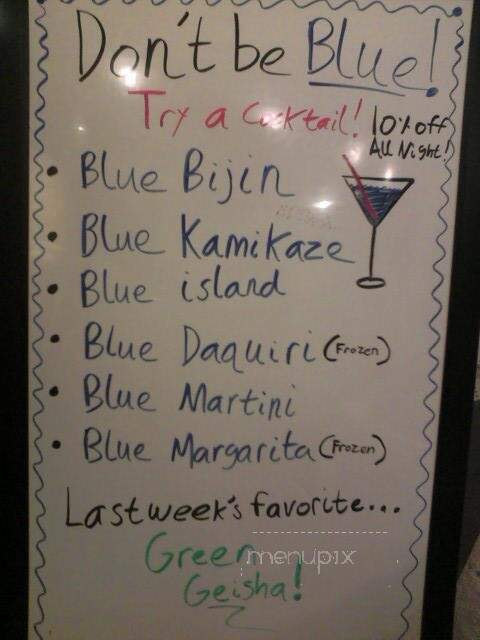 Don't be Blue!
Try a Cocktail!
10% off
All Night!
• Blue Bijin
• Blue Kamikaze
• Blue island
• Blue Daquiri (Frozen)
• Blue Martini
• Blue Margarita (Frozen)
Last week's favorite...
Green
menupix
Geisha!